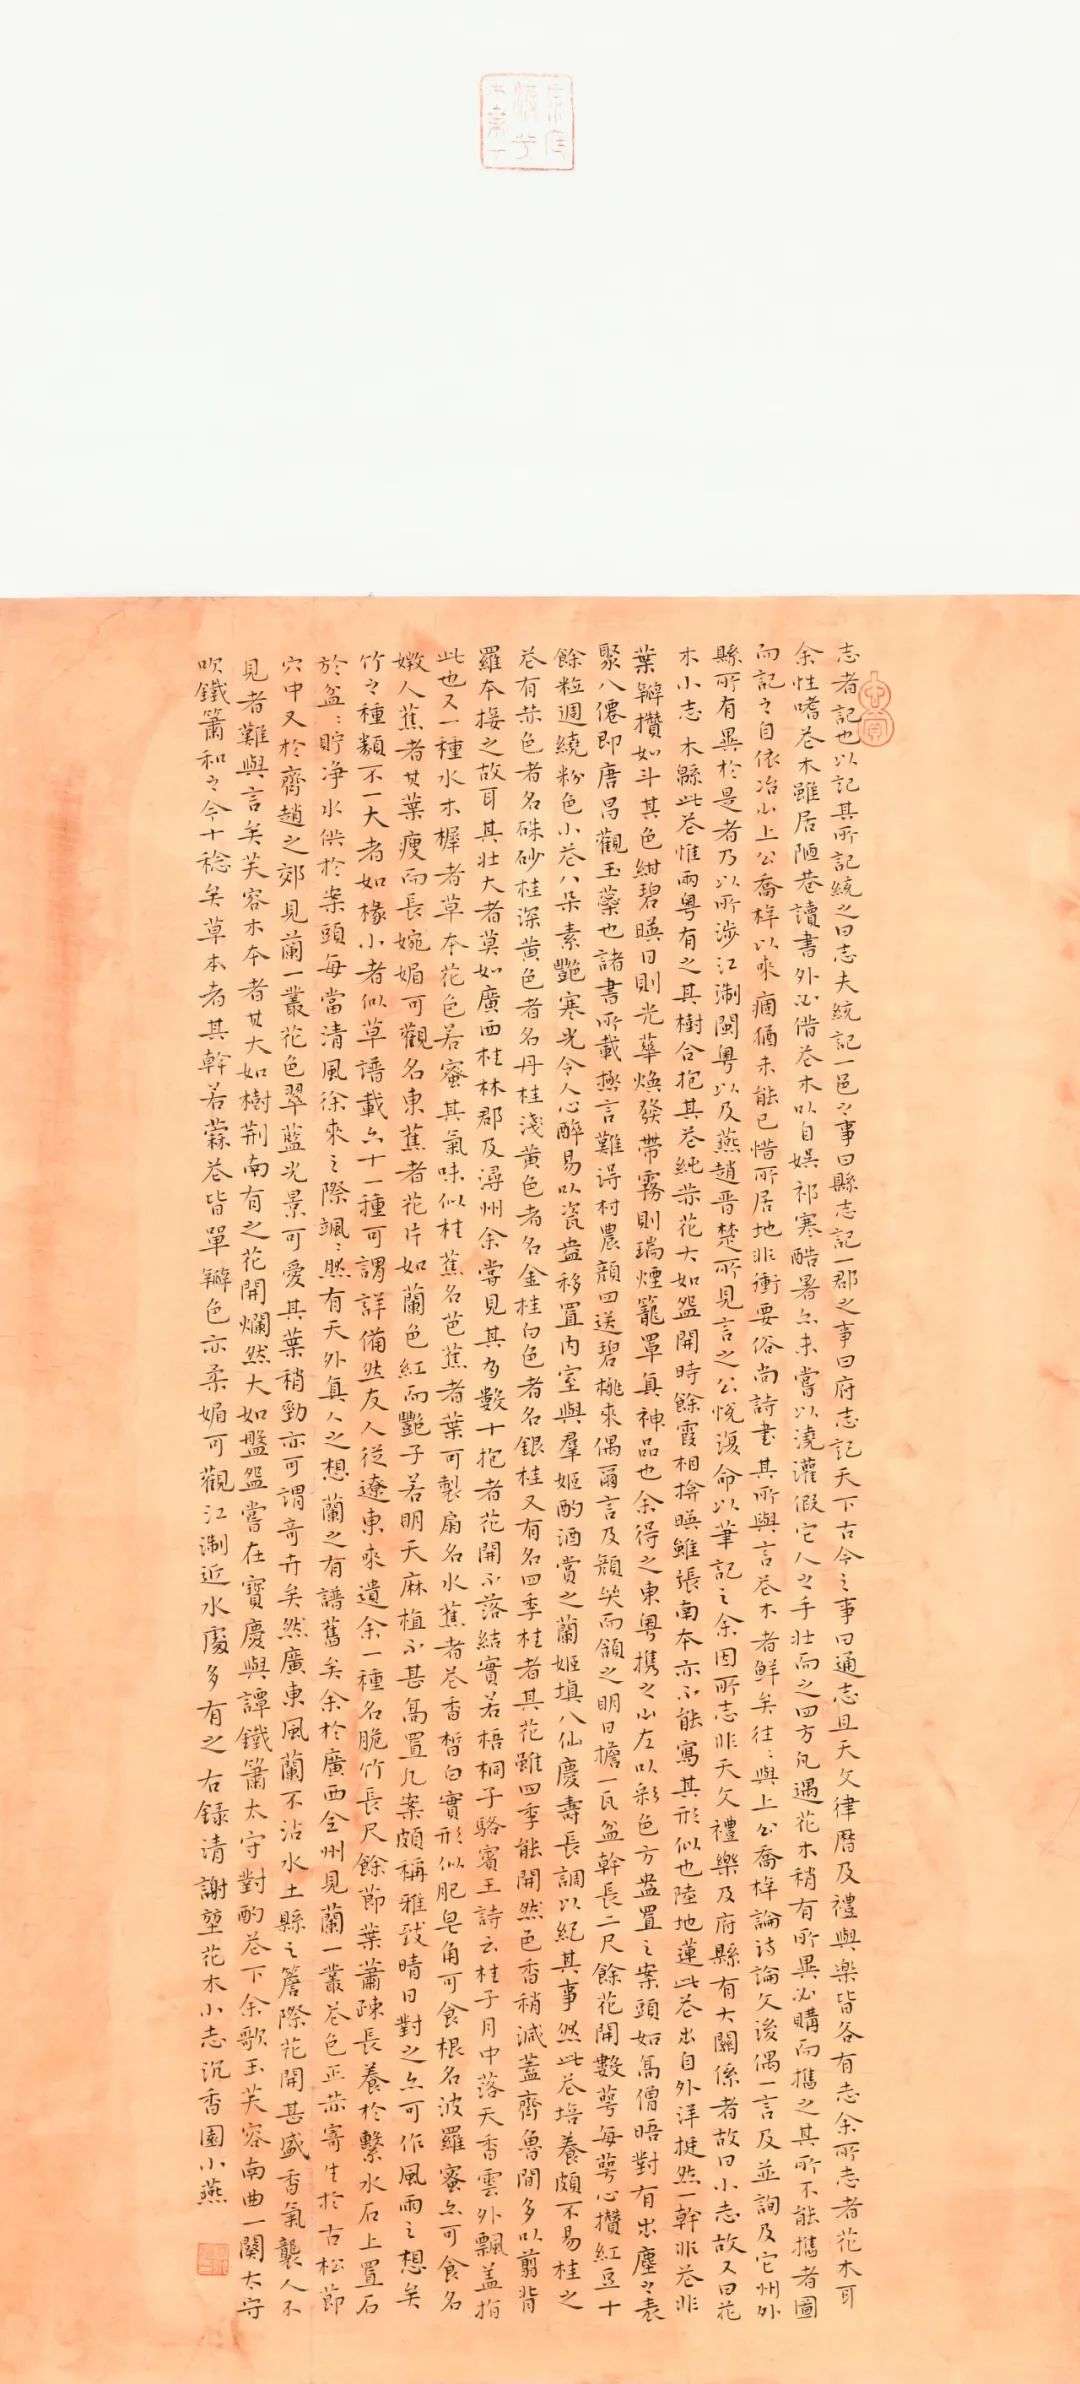 志者記也以記其所記統之曰志夫統記一邑之事曰縣志記一郡之事曰府志記天下古今之事曰通志且天文律曆及禮與樂皆各有志余所志者花木耳
余性嗜花木雖居陋巷讀書外必借花木以自娛祁寒酷暑亦未嘗以澆灌假它人之手壯而之四方凡遇花木稍有所異必購而攜之其所不能攜者圖
而記之自依冶山上公喬梓以來痼猶未能已惜所居地非衝要俗尚詩書其所與言花木者鮮矣往:與上公喬梓論詩論文後偶一言及並詢及它州外
縣所有異於是者乃以所涉江淛閩粵以及燕趙晉楚所見言之公悅復命以筆記之余因所志非天文禮樂及府縣有大關係者故曰小志故又曰花
木小志 木緜此花惟兩粵有之其樹合抱其花純赤花大如盌開時餘霞相揜暎雖張南本亦不能寫其形似也陸地蓮此花出自外洋挺然一幹非花非
葉瓣攢如斗其色紺碧暎日則光華煥發帶霧則瑞煙籠罩真神品也余得之東粵攜之山左以彩色方盎置之案頭如高僧晤對有出塵之表
聚八僊即唐昌觀玉蘂也諸書所載極言難得村農顏四送碧桃來偶爾言及顏笑而頷之明日擔一瓦盆幹長二尺餘花開數萼每萼心攢紅豆十
餘粒週繞粉色小花八朵素艷寒光令人心醉易以瓷盎移置內室與羣姬酌酒賞之蘭姬填八仙慶壽長調以紀其事然此花培養頗不易桂之
花有赤色者名硃砂桂深黄色者名丹桂淺黄色者名金桂白色者名銀桂又有名四季桂者其花雖四季能開然色香稍減蓋齊魯間多以翦背
羅本接之故耳其壯大者莫如廣西桂林郡及潯州余嘗見其为數十抱者花開不落結實若梧桐子駱賓王詩云桂子月中落天香雲外飄盖指
此也又一種水木樨者草本花色若蜜其氣味似桂蕉名芭蕉者葉可製扇名水蕉者花香皙白實形似肥皂角可食根名波羅蜜亦可食名
媺人蕉者其葉瘦而長婉媚可觀名東蕉者花片如蘭色紅而艷子若明天麻植不甚高置几案頗稱雅致晴日對之亦可作風雨之想矣
竹之種類不一大者如椽小者似草譜載六十一種可謂詳備然友人從遼東來遺余一種名脆竹長尺餘節葉蕭疎長養於繫水石上置石
於盆:貯净水供於案頭每當清風徐來之際颯:然有天外真人之想蘭之有譜舊矣余於廣西全州見蘭一叢花色正赤寄生於古松節
穴中又於齊趙之郊見蘭一叢花色翠藍光景可愛其葉稍勁亦可謂奇卉矣然廣東風蘭不沾水土縣之簷際花開甚盛香氣襲人不
見者難與言矣芙容木本者其大如樹荆南有之花開爛然大如盤盌嘗在寶慶與譚鐵簫太守對酌花下余歌玉芙容南曲一闋太守
吹鐵簫和之今十稔矣草本者其幹若蒜花皆單瓣色亦柔媚可觀江淛近水處多有之右録清謝堃花木小志沉香園小燕